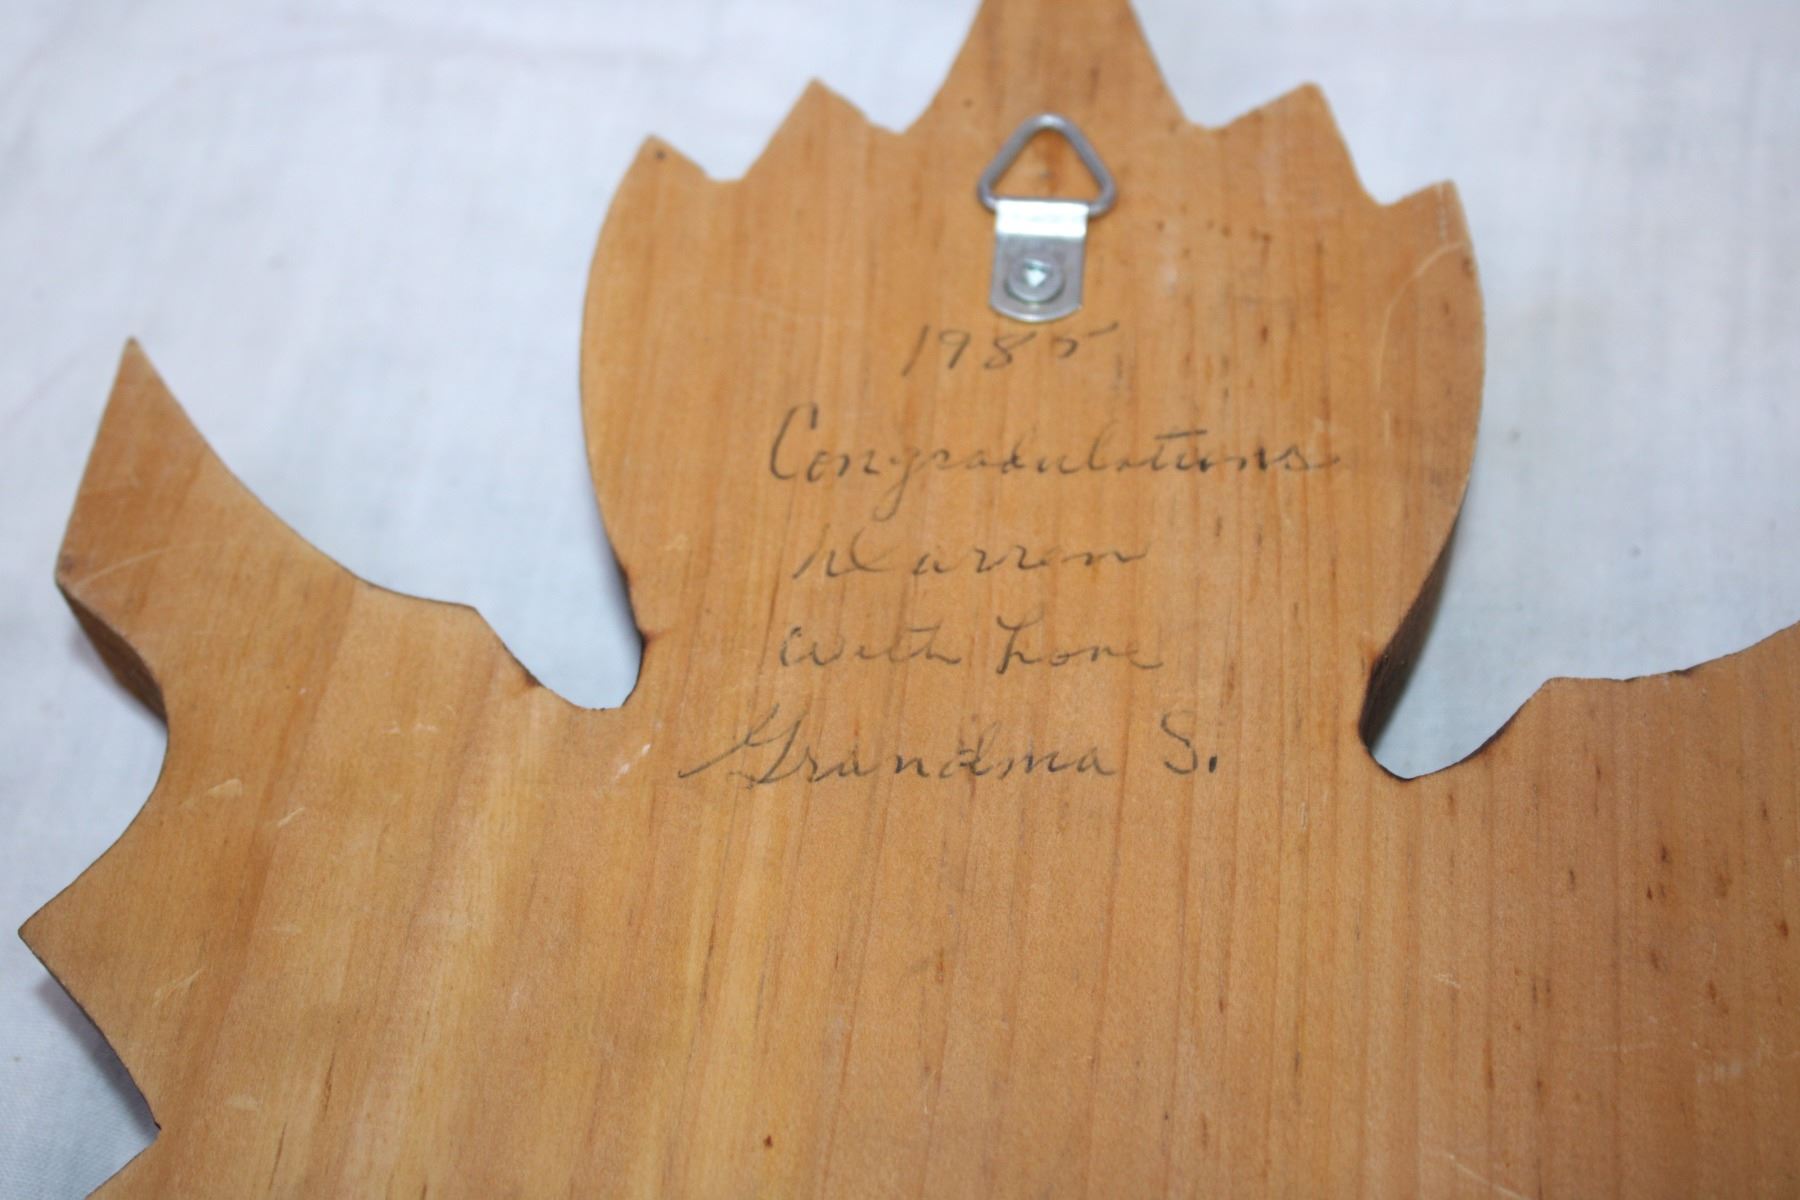 1985
Congradulations
Warren
with Love
Grandma S.